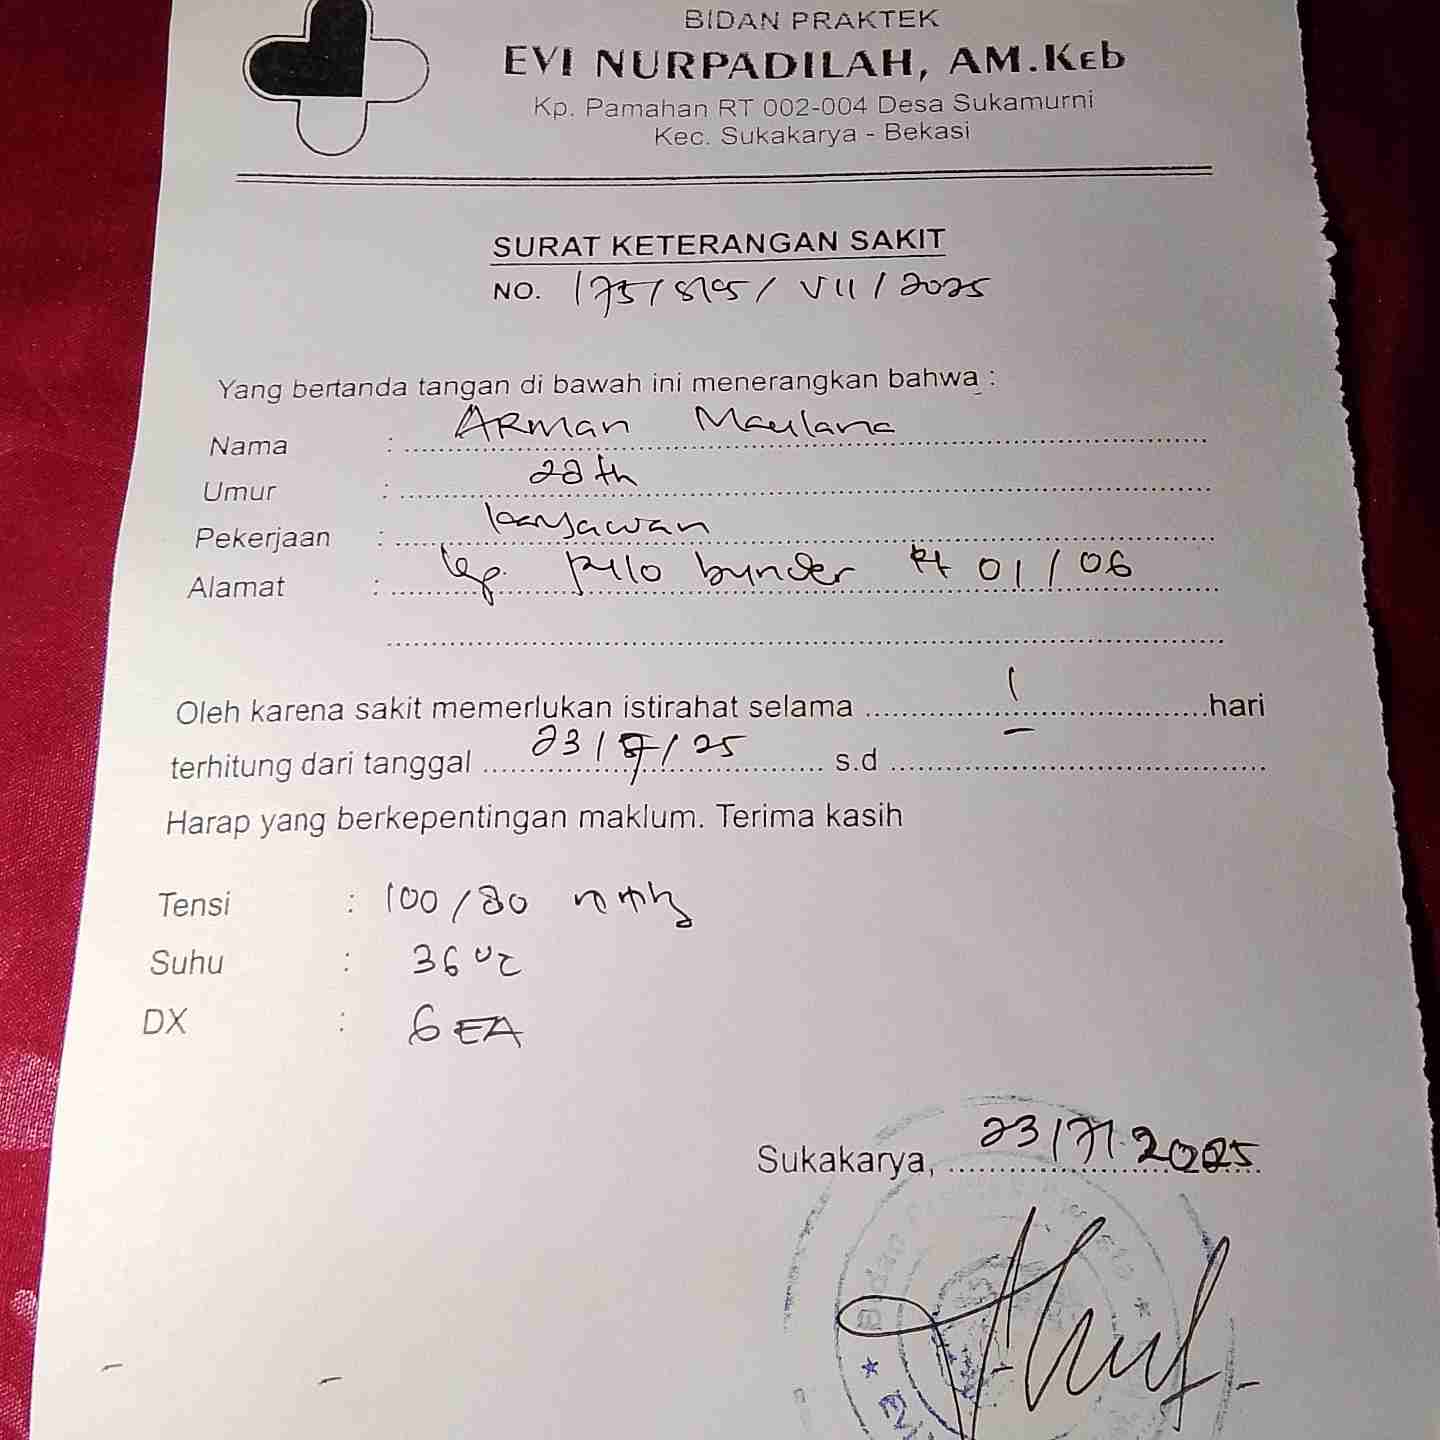 BIDAN PRAKTEK
EVI NURPADILAH, AM.Keb
Kp. Pamahan RT 002-004 Desa Sukamurni
Kec. Sukakarya - Bekasi
SURAT KETERANGAN SAKIT
NO. 175/ / VII / 2025
Yang bertanda tangan di bawah ini menerangkan bahwa :
Nama : ARMan Maulana
Umur : 28 th
Pekerjaan : karyawan
Alamat : kp. pulo bunder Rt 01/06
Oleh karena sakit memerlukan istirahat selama 1 hari
terhitung dari tanggal 23/7/25 s.d -
Harap yang berkepentingan maklum. Terima kasih
Tensi : 100/80 mmHg
Suhu : 36 °C
DX : GEA
Sukakarya, 23/7/2025
EVI